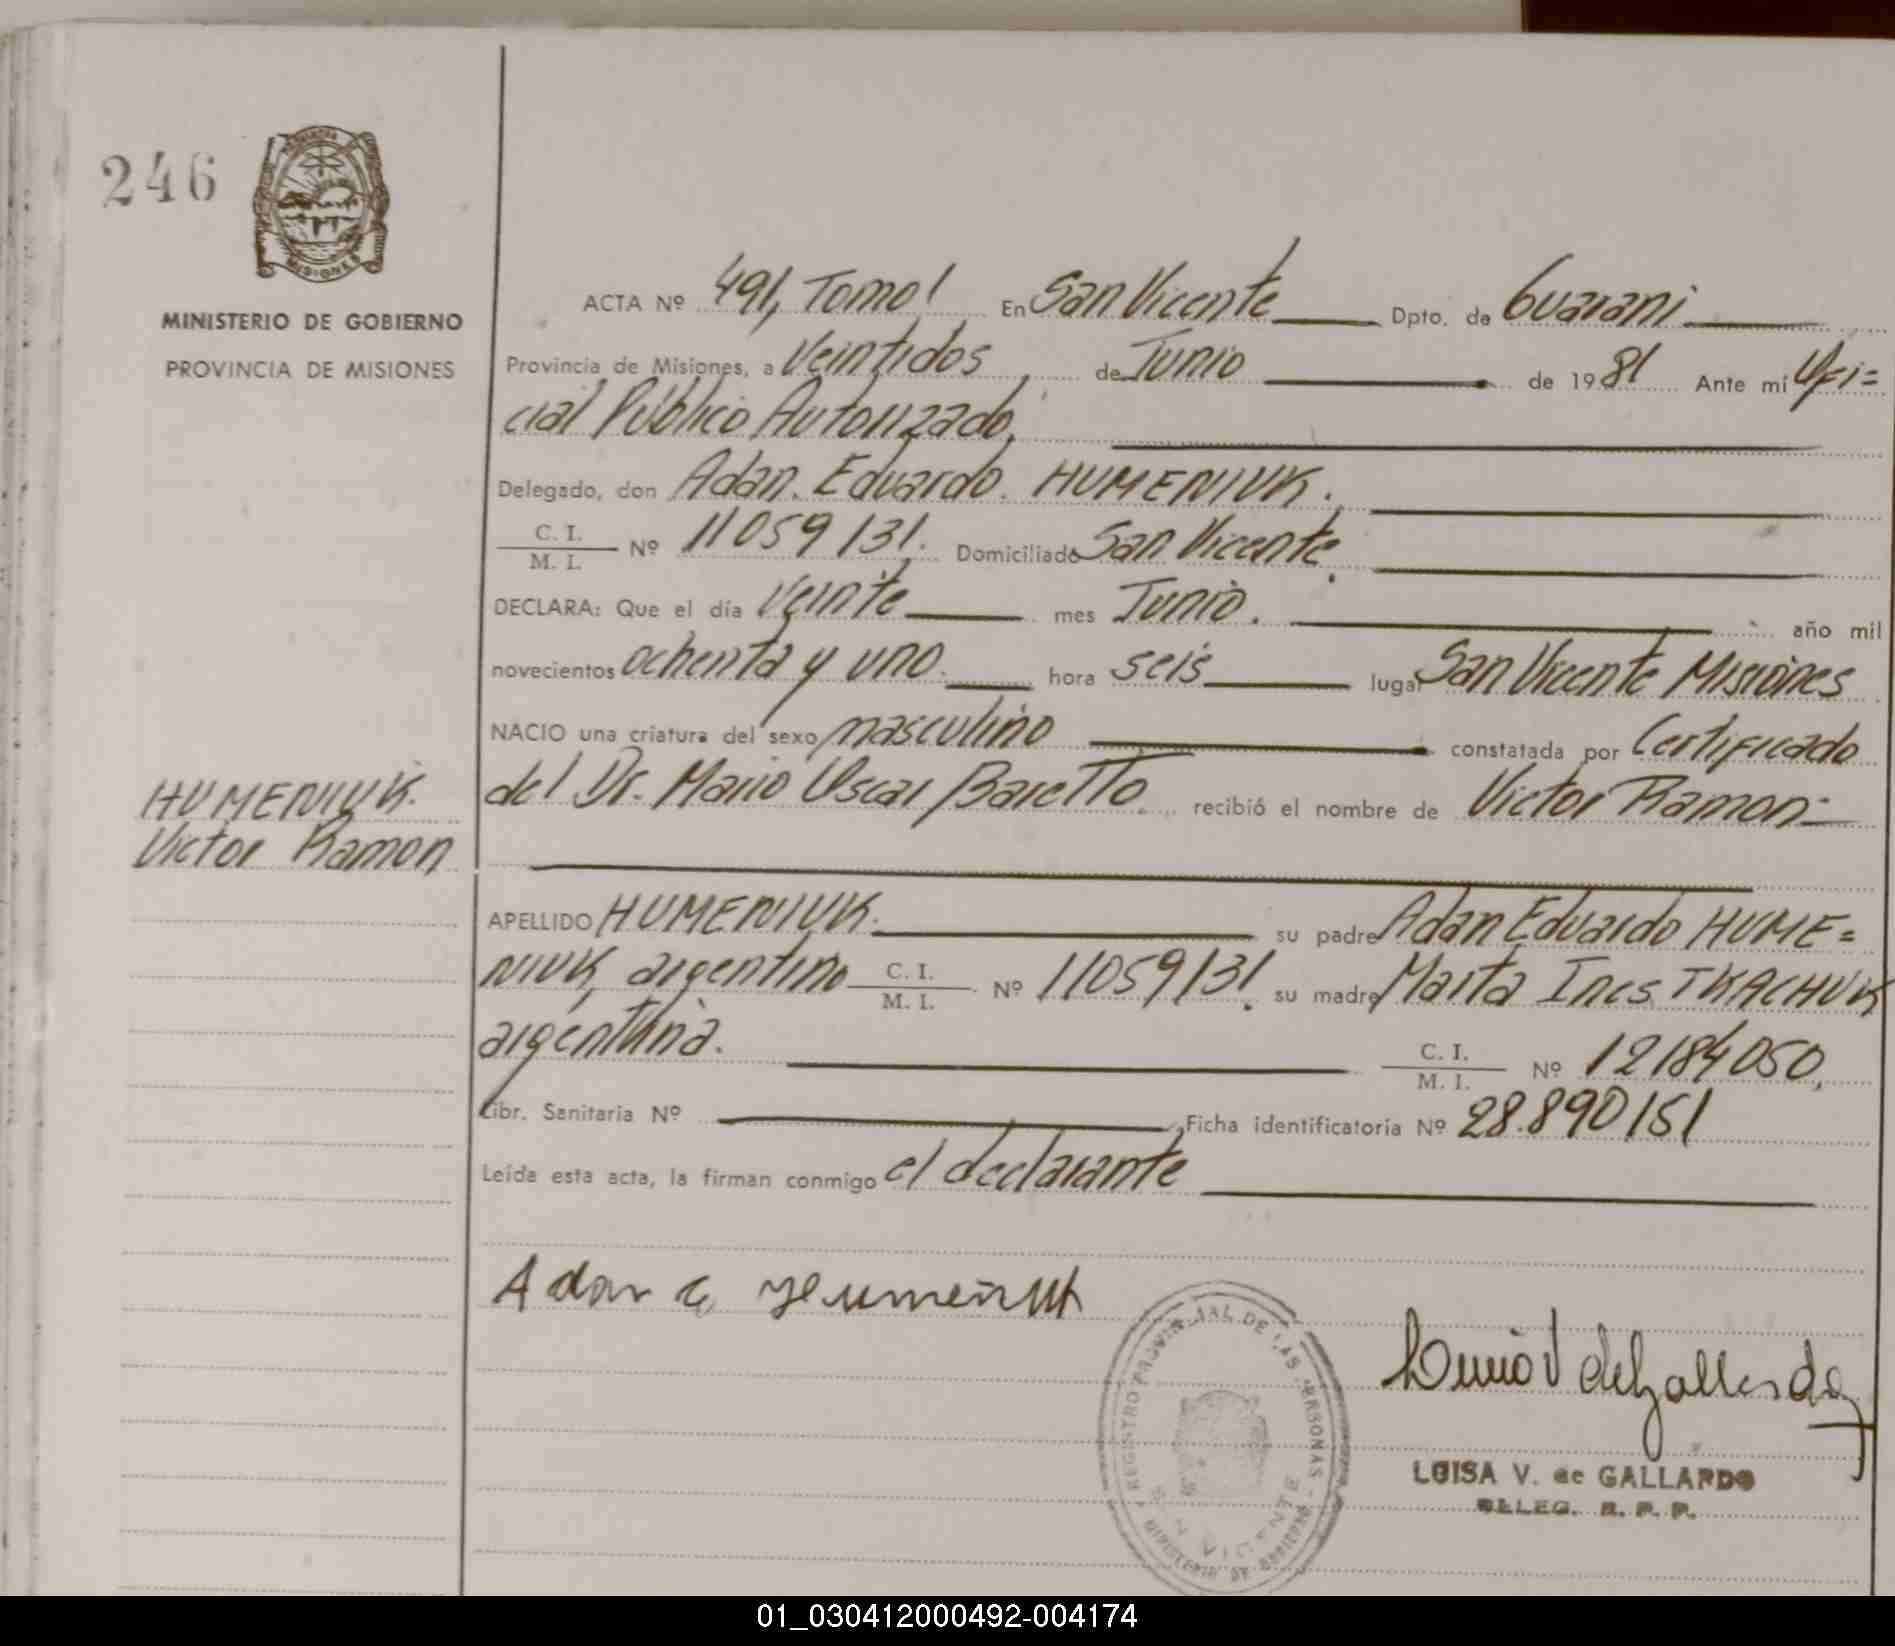 246
MISIONES
MINISTERIO DE GOBIERNO
PROVINCIA DE MISIONES
ACTA Nº 491, Tomo I En San Vicente Dpto. de Guarani
Provincia de Misiones, a Veintidos de Junio de 1981 Ante mi Ofi=
cial Público Autorizado,
Delegado, don Adan. Eduardo. HUMENIUK.
C. I.
M. I. Nº 11059131. Domiciliado San Vicente.
DECLARA: Que el día Veinte mes Junio. año mil
novecientos ochenta y uno. hora seis lugar San Vicente Misiones
NACIO una criatura del sexo masculino constatada por Certificado
del Dr. Mario Oscar Baretto recibió el nombre de Victor Ramon=
HUMENIUK.
Victor Ramon
APELLIDO HUMENIUK. su padre Adan Eduardo HUME=
NIUK, argentino C. I. M. I. Nº 11059131. su madre Marta Ines TKACHUK
argentina. C. I. M. I. Nº 12184050,
Libr. Sanitaria Nº Ficha identificatoria Nº 28.890151
Leída esta acta, la firman conmigo el declarante
Adan E Humeniuk
REGISTRO PROVINCIAL DE LAS PERSONAS - MINISTERIO DE GOBIERNO
SAN VICENTE
Luisa V de Gallardo
LUISA V. de GALLARDO
DELEG. R. P. P.
01_030412000492-004174